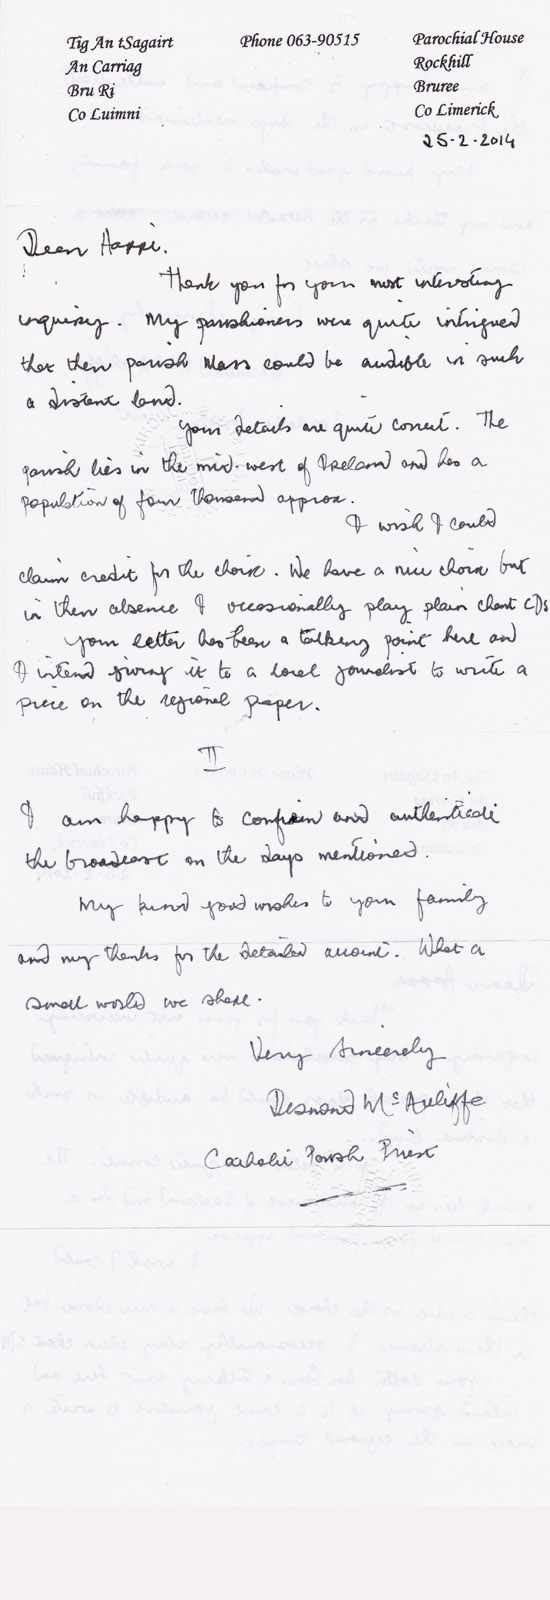 Tig An tSagairt
An Carriag
Bru Ri
Co Luimni
Phone 063-90515
Parochial House
Rockhill
Bruree
Co Limerick
25-2-2014
Dear Harri.
Thank you for your most interesting
inquiry. My parishioners were quite intrigued
that their parish Mass could be audible in such
a distant land.
Your details are quite correct. The
parish lies in the mid-west of Ireland and has a
population of four thousand approx.
I wish I could
claim credit for the choir. We have a nice choir but
in their absence I occasionally play plain chant CDs
Your letter has been a talking point here and
I intend giving it to a local journalist to write a
piece on the regional paper.
II
I am happy to confirm and authenticate
the broadcast on the days mentioned.
My kind good wishes to your family
and my thanks for the detailed account. What a
small world we share.
Very Sincerely
Desmond McAuliffe
Catholic Parish Priest